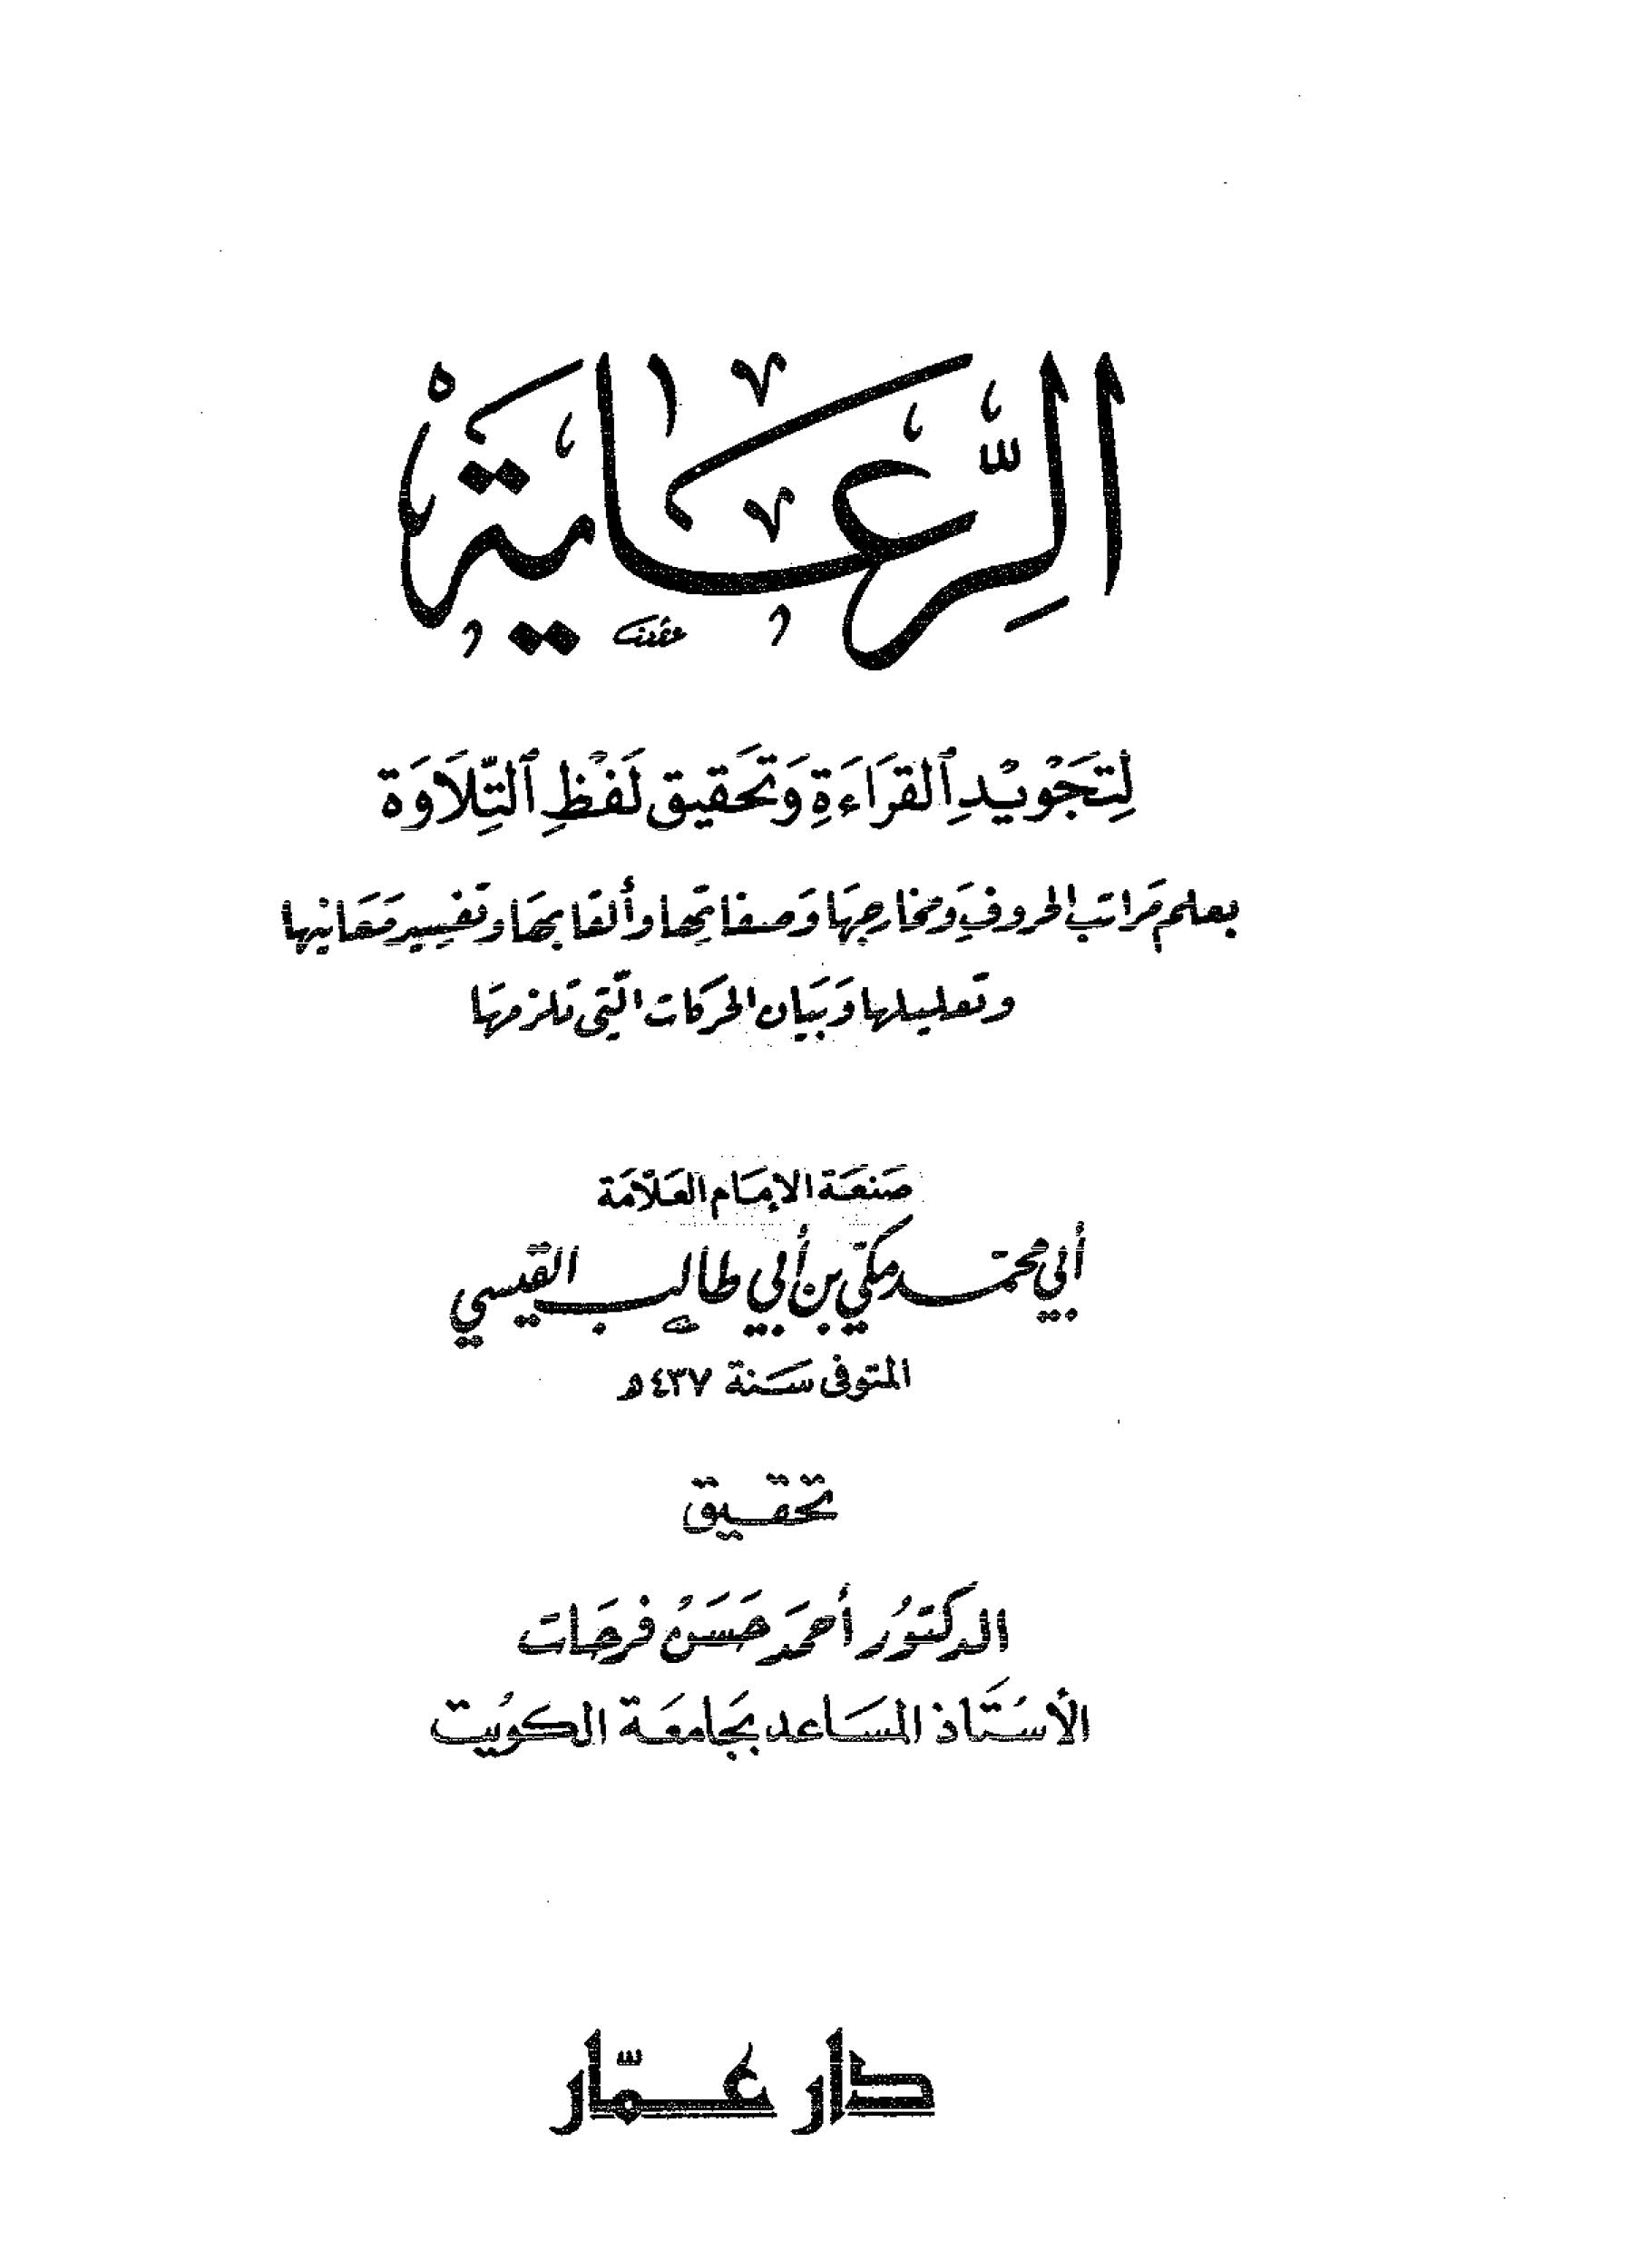 الرِّعَايَة
لِتَجْوِيْدِ ٱلقرَاءَةِ وَتَحَقيق لَفْظِ ٱلتِّلَاوَة
بعلم مَراتب الحروفِ وَمخارجهَا وَصفاتِها وألقابهَا وَتفسِير مَعَانيها
وتعليلها وَبَيَان الحرَكات الَّتي تَلزمهَا
صَنعَة الإمَام العَلاَّمَة
أبي محمّد مكّي بن أبي طالب القيسي
المتوفى سَنة ٤٣٧ه
تحقيق
الدكتوُر أحمَد حَسَنْ فرحَات
الأسُتَاذ المسَاعد بجَامعَة الكوُيت
دار عمّار